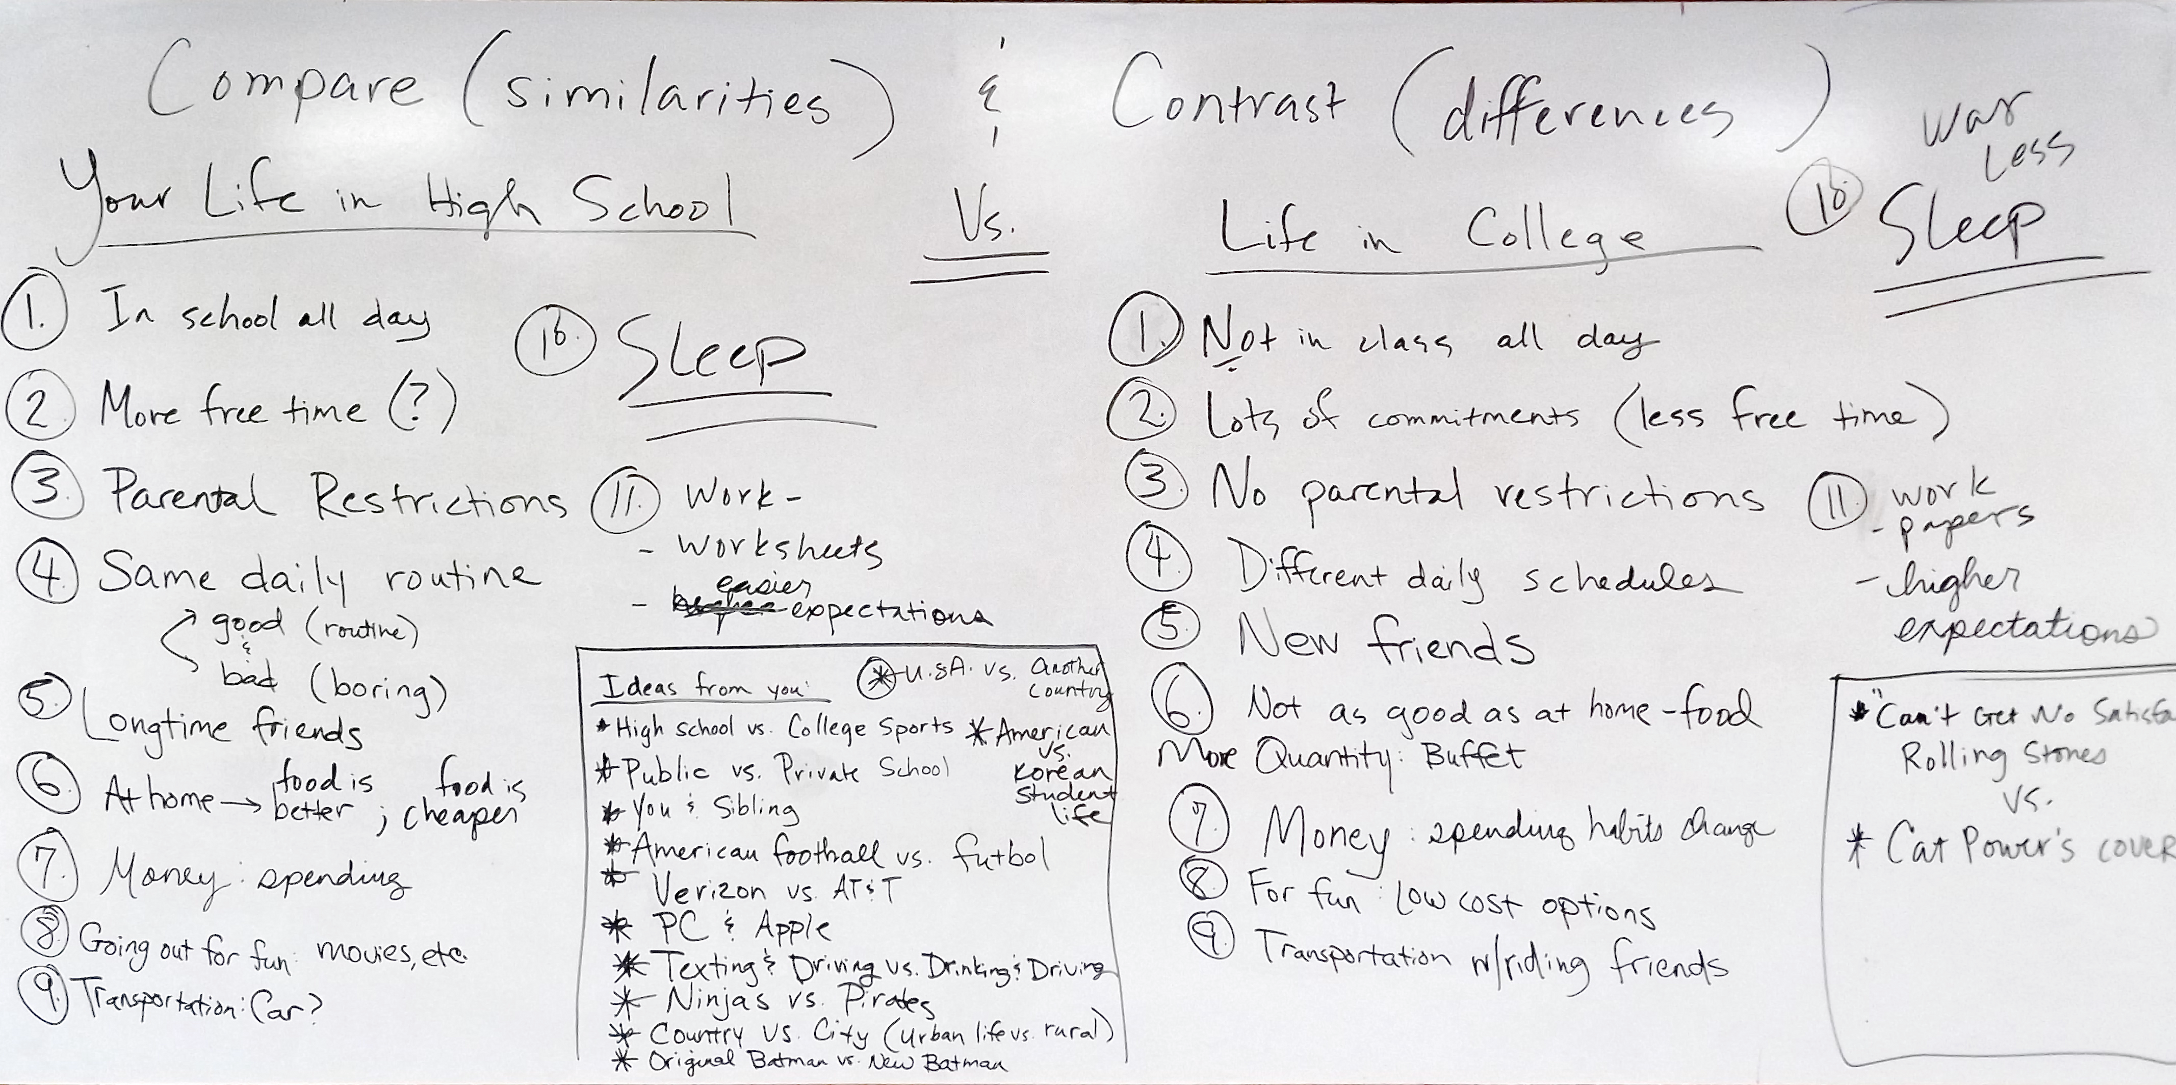 Compare (similarities) & Contrast (differences)
Your Life in High School Vs. Life in College
1. In school all day
2 More free time (?)
3. Parental Restrictions
4. Same daily routine
good (routine)
&
bad (boring)
5. Longtime friends
6. At home → food is better ; food is cheaper
7. Money: spending
8. Going out for fun: movies, etc.
9. Transportation: Car?
10. Sleep
11. Work -
- worksheets
- easier expectations
Ideas from you:
* U.S.A. vs. Another Country
* High school vs. College Sports
* American vs. Korean student life
* Public vs. Private School
* You & Sibling
* American football vs. futbol
* Verizon vs. AT&T
* PC & Apple
* Texting & Driving vs. Drinking & Driving
* Ninjas vs. Pirates
* Country vs. City (urban life vs. rural)
* Original Batman vs. New Batman
1. Not in class all day
2. Lots of commitments (less free time)
3. No parental restrictions
4. Different daily schedules
5. New friends
6. Not as good as at home - food
More Quantity: Buffet
7. Money: spending habits change
8. For fun: low cost options
9. Transportation w/riding friends
10. Way Less
Sleep
11. work
- papers
- higher
expectations
* "Can't Get No Satisfa
Rolling Stones
vs.
* Cat Power's cover